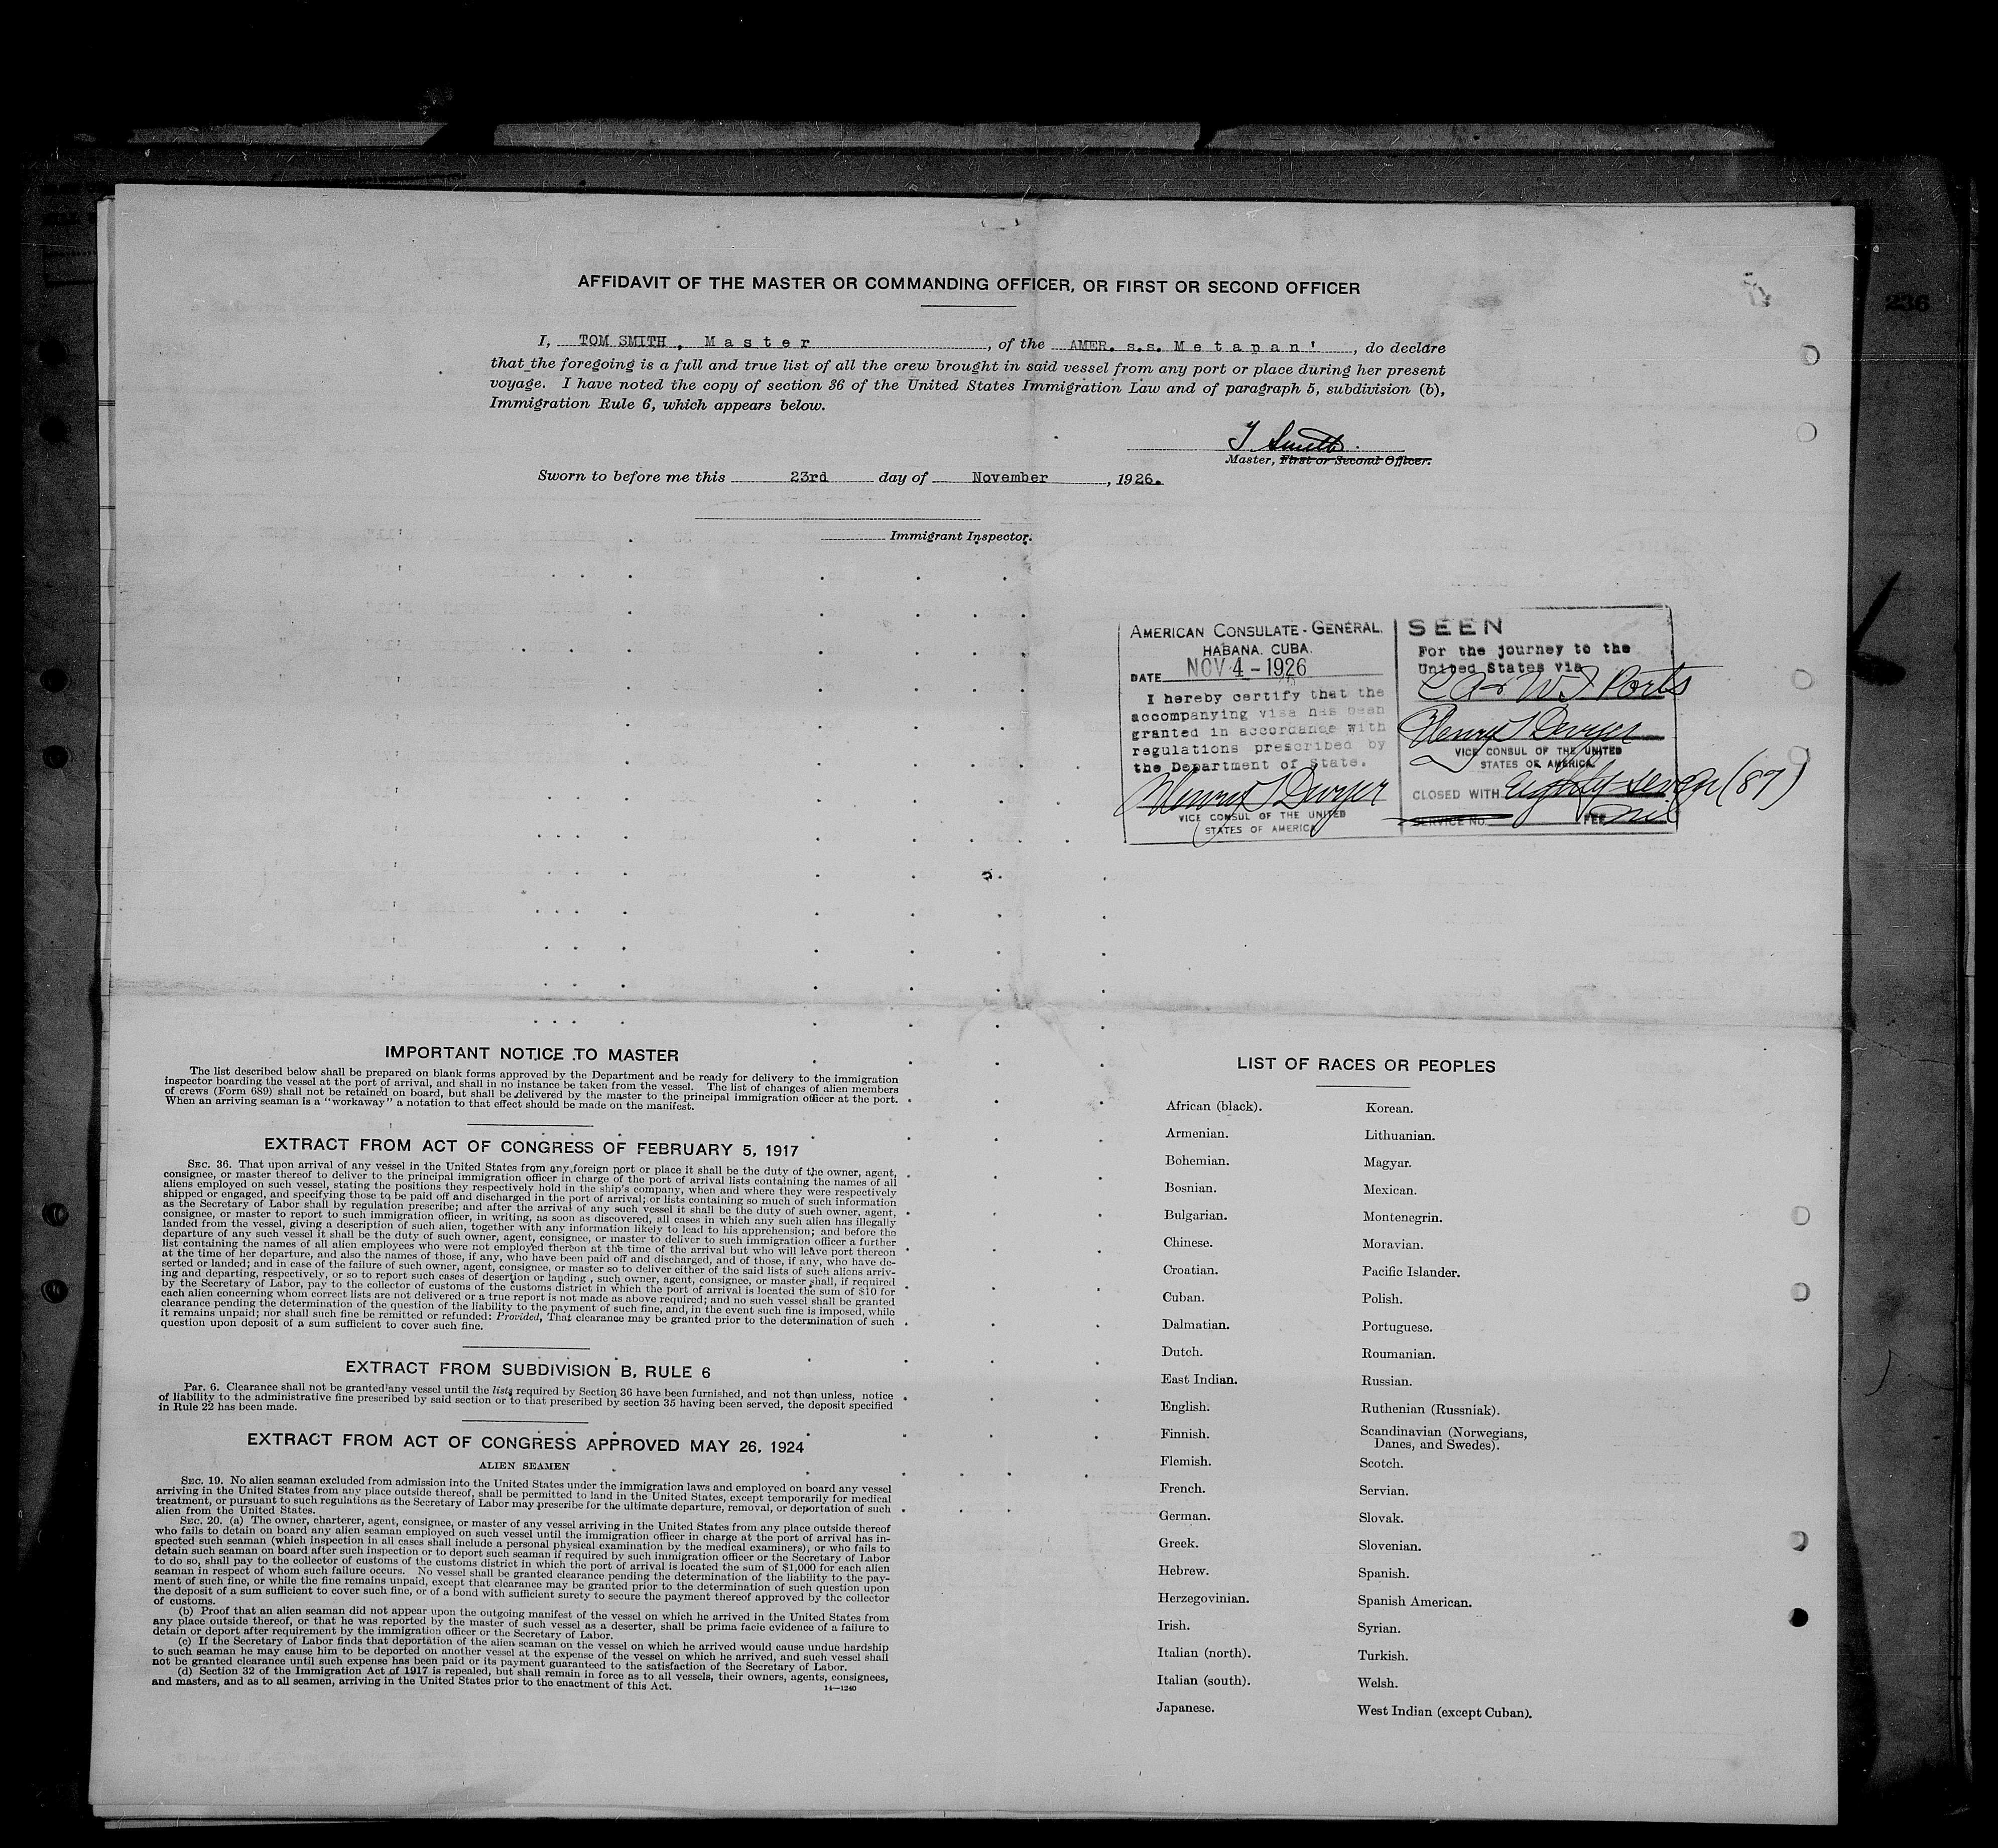 236
AFFIDAVIT OF THE MASTER OR COMMANDING OFFICER, OR FIRST OR SECOND OFFICER
I, TOM SMITH, Master, of the AMER. s.s. Metapan', do declare
that the foregoing is a full and true list of all the crew brought in said vessel from any port or place during her present
voyage. I have noted the copy of section 36 of the United States Immigration Law and of paragraph 5, subdivision (b),
Immigration Rule 6, which appears below.
T Smith
Master, First or Second Officer.
Sworn to before me this 23rd day of November, 1926.
Immigrant Inspector.
AMERICAN CONSULATE-GENERAL.
HABANA. CUBA.
DATE NOV 4-1926
I hereby certify that the
accompanying visa has been
granted in accordance with
regulations prescribed by
the Department of State.
Henry T Dwyer
VICE CONSUL OF THE UNITED
STATES OF AMERICA
SEEN
For the journey to the
United States via
Ports
Henry T Dwyer
VICE CONSUL OF THE UNITED
STATES OF AMERICA
CLOSED WITH eighty-seven (87)
SERVICE No. FEE nil
IMPORTANT NOTICE TO MASTER
The list described below shall be prepared on blank forms approved by the Department and be ready for delivery to the immigration
inspector boarding the vessel at the port of arrival, and shall in no instance be taken from the vessel. The list of changes of alien members
of crews (Form 689) shall not be retained on board, but shall be delivered by the master to the principal immigration officer at the port.
When an arriving seaman is a "workaway" a notation to that effect should be made on the manifest.
EXTRACT FROM ACT OF CONGRESS OF FEBRUARY 5, 1917
SEC. 36. That upon arrival of any vessel in the United States from any foreign port or place it shall be the duty of the owner, agent,
consignee, or master thereof to deliver to the principal immigration officer in charge of the port of arrival lists containing the names of all
aliens employed on such vessel, stating the positions they respectively hold in the ship's company, when and where they were respectively
shipped or engaged, and specifying those to be paid off and discharged in the port of arrival; or lists containing so much of such information
as the Secretary of Labor shall by regulation prescribe; and after the arrival of any such vessel it shall be the duty of such owner, agent,
consignee, or master to report to such immigration officer, in writing, as soon as discovered, all cases in which any such alien has illegally
landed from the vessel, giving a description of such alien, together with any information likely to lead to his apprehension; and before the
departure of any such vessel it shall be the duty of such owner, agent, consignee, or master to deliver to such immigration officer a further
list containing the names of all alien employees who were not employed thereon at the time of the arrival but who will leave port thereon
at the time of her departure, and also the names of those, if any, who have been paid off and discharged, and of those, if any, who have de-
serted or landed; and in case of the failure of such owner, agent, consignee, or master so to deliver either of the said lists of such aliens arriv-
ing and departing, respectively, or so to report such cases of desertion or landing, such owner, agent, consignee, or master shall, if required
by the Secretary of Labor, pay to the collector of customs of the customs district in which the port of arrival is located the sum of $10 for
each alien concerning whom correct lists are not delivered or a true report is not made as above required; and no such vessel shall be granted
clearance pending the determination of the question of the liability to the payment of such fine, and, in the event such fine is imposed, while
it remains unpaid; nor shall such fine be remitted or refunded: Provided, That clearance may be granted prior to the determination of such
question upon deposit of a sum sufficient to cover such fine.
EXTRACT FROM SUBDIVISION B, RULE 6
Par. 6. Clearance shall not be granted any vessel until the lists required by Section 36 have been furnished, and not then unless, notice
of liability to the administrative fine prescribed by said section or to that prescribed by section 35 having been served, the deposit specified
in Rule 22 has been made.
EXTRACT FROM ACT OF CONGRESS APPROVED MAY 26, 1924
ALIEN SEAMEN
SEC. 19. No alien seaman excluded from admission into the United States under the immigration laws and employed on board any vessel
arriving in the United States from any place outside thereof, shall be permitted to land in the United States, except temporarily for medical
treatment, or pursuant to such regulations as the Secretary of Labor may prescribe for the ultimate departure, removal, or deportation of such
alien from the United States.
SEC. 20. (a) The owner, charterer, agent, consignee, or master of any vessel arriving in the United States from any place outside thereof
who fails to detain on board any alien seaman employed on such vessel until the immigration officer in charge at the port of arrival has in-
spected such seaman (which inspection in all cases shall include a personal physical examination by the medical examiners), or who fails to
detain such seaman on board after such inspection or to deport such seaman if required by such immigration officer or the Secretary of Labor
to do so, shall pay to the collector of customs of the customs district in which the port of arrival is located the sum of $1,000 for each alien
seaman in respect of whom such failure occurs. No vessel shall be granted clearance pending the determination of the liability to the pay-
ment of such fine, or while the fine remains unpaid, except that clearance may be granted prior to the determination of such question upon
the deposit of a sum sufficient to cover such fine, or of a bond with sufficient surety to secure the payment thereof approved by the collector
of customs.
(b) Proof that an alien seaman did not appear upon the outgoing manifest of the vessel on which he arrived in the United States from
any place outside thereof, or that he was reported by the master of such vessel as a deserter, shall be prima facie evidence of a failure to
detain or deport after requirement by the immigration officer or the Secretary of Labor.
(c) If the Secretary of Labor finds that deportation of the alien seaman on the vessel on which he arrived would cause undue hardship
to such seaman he may cause him to be deported on another vessel at the expense of the vessel on which he arrived, and such vessel shall
not be granted clearance until such expense has been paid or its payment guaranteed to the satisfaction of the Secretary of Labor.
(d) Section 32 of the Immigration Act of 1917 is repealed, but shall remain in force as to all vessels, their owners, agents, consignees,
and masters, and as to all seamen, arriving in the United States prior to the enactment of this Act.
14—1240
LIST OF RACES OR PEOPLES
African (black).
Armenian.
Bohemian.
Bosnian.
Bulgarian.
Chinese.
Croatian.
Cuban.
Dalmatian.
Dutch.
East Indian.
English.
Finnish.
Flemish.
French.
German.
Greek.
Hebrew.
Herzegovinian.
Irish.
Italian (north).
Italian (south).
Japanese.
Korean.
Lithuanian.
Magyar.
Mexican.
Montenegrin.
Moravian.
Pacific Islander.
Polish.
Portuguese.
Roumanian.
Russian.
Ruthenian (Russniak).
Scandinavian (Norwegians,
Danes, and Swedes).
Scotch.
Servian.
Slovak.
Slovenian.
Spanish.
Spanish American.
Syrian.
Turkish.
Welsh.
West Indian (except Cuban).